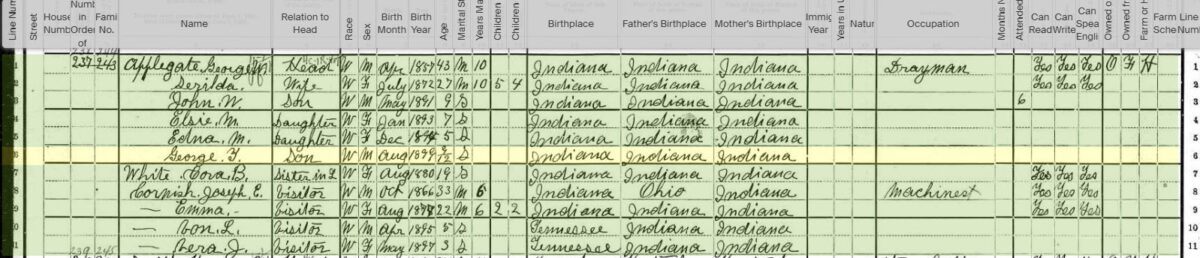 Line Num Street House Numb Numb in Order of Fami No. Name Relation to Head Race Sex Birth Month Birth Year Age Marital St Years Ma Children Children Birthplace Father's Birthplace Mother's Birthplace Immig Year Years in U Natur Occupation Months N Attended Can Read Can Write Can Spea Engli Owned o Owned fr Farm or H Farm Sche Line Num
1 237 243 Applegate George W Head W M Apr 1857 43 M 10 Indiana Indiana Indiana Drayman Yes Yes Yes O F H 1
2 Serilda. Wife W F July 1872 27 M 10 5 4 Indiana Indiana Indiana Yes Yes Yes 2
3 John W. Son W M May 1891 9 S Indiana Indiana Indiana 6 3
4 Elsie M. Daughter W F Jan 1893 7 S Indiana Indiana Indiana 4
5 Edna. M. Daughter W F Dec 1894 5 S Indiana Indiana Indiana 5
6 George. F. Son W M Aug 1899 9/12 S Indiana Indiana Indiana 6
7 White Cora B. Sister in L W F Aug 1880 19 S Indiana Indiana Indiana Yes Yes Yes 7
8 Cornish Joseph E. Visitor W M Oct 1866 33 M 6 Indiana Ohio Indiana Machinest Yes Yes Yes 8
9 — Emma. - Visitor W F Aug 1877 22 M 6 2 2 Indiana Indiana Indiana Yes Yes Yes 9
10 — Von L. Visitor W M Apr 1895 5 S Tennessee Indiana Indiana 10
11 — Vera J. Visitor W F May 1897 3 S Tennessee Indiana Indiana 11